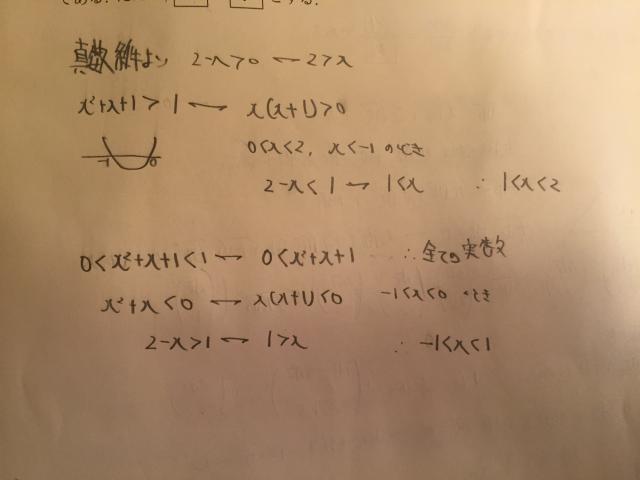 とする.
真数条件より 2-x>0 ↔ 2>x
x²+x+1>1 ↔ x(x+1)>0
-1 0
0<x<2, x<-1 のとき
2-x<1 ↔ 1<x ∴ 1<x<2
0<x²+x+1<1 ↔ 0<x²+x+1 ∴ 全ての実数
x²+x<0 ↔ x(x+1)<0 -1<x<0 のとき
2-x>1 ↔ 1>x ∴ -1<x<1